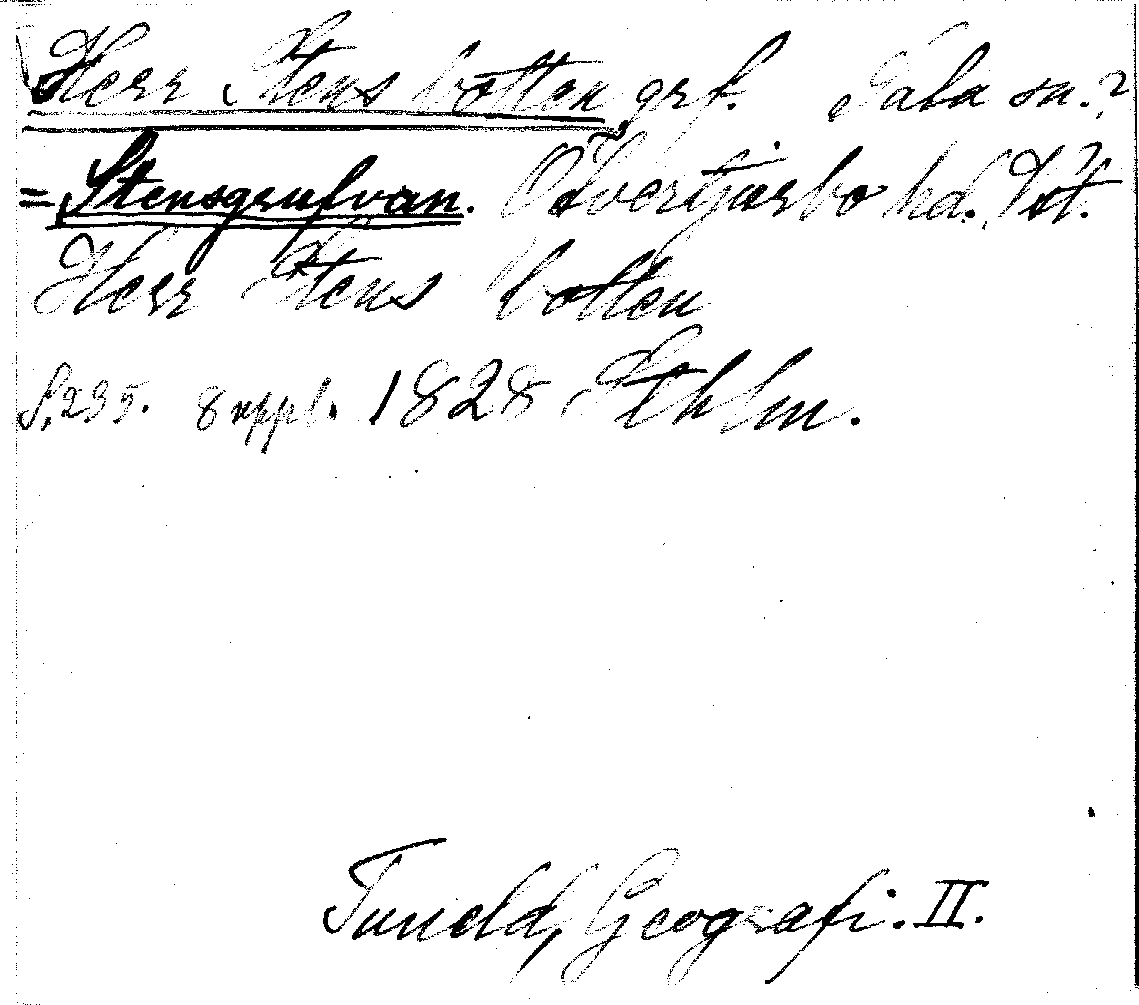 Herr Stens botten, grf. Gåla sn.?
= Stensgrufvan. Övertjärbo hd. Vst.
Herr Stens botten
S. 235. 8 uppl. 1828 Sthlm.
Tuneld, Geografi. II.